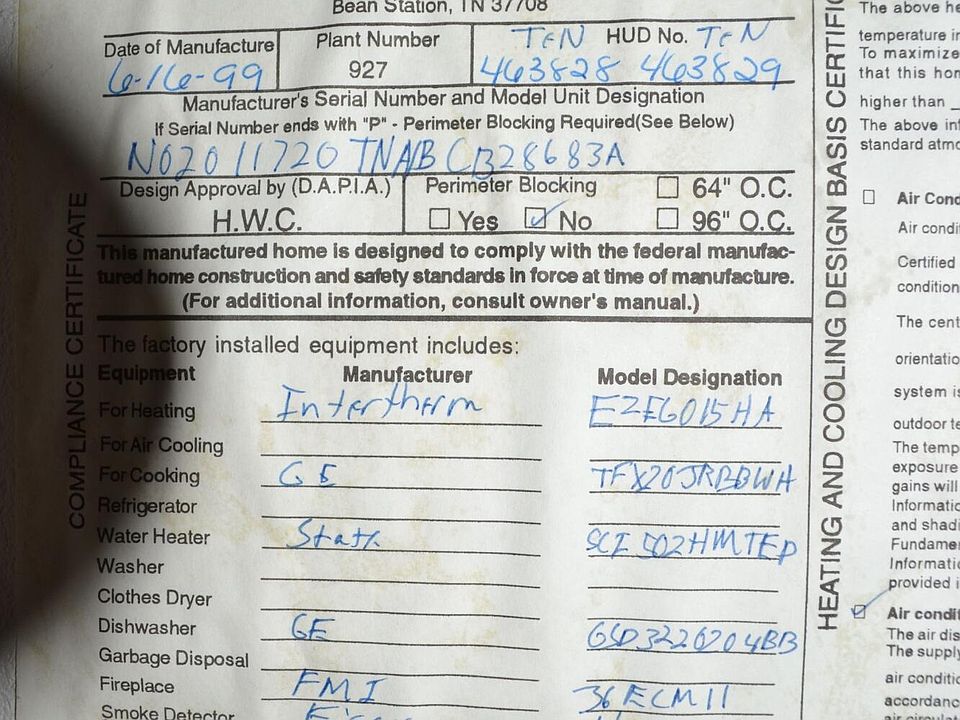 Bean Station, TN 37708
Date of Manufacture Plant Number TEN HUD No. TEN
6-16-99 927 463828 463829
Manufacturer's Serial Number and Model Unit Designation
If Serial Number ends with "P" - Perimeter Blocking Required(See Below)
N02011720TNA/B CB28683A
Design Approval by (D.A.P.I.A.) Perimeter Blocking ☐ 64" O.C.
H.W.C. ☐ Yes ☑ No ☐ 96" O.C.
This manufactured home is designed to comply with the federal manufac-
tured home construction and safety standards in force at time of manufacture.
(For additional information, consult owner's manual.)
COMPLIANCE CERTIFICATE
The factory installed equipment includes:
Equipment Manufacturer Model Designation
For Heating Intertherm E2EG015HA
For Air Cooling
For Cooking GE TFX20JRBBWH
Refrigerator
Water Heater State
Washer
Clothes Dryer
Dishwasher GE
Garbage Disposal
Fireplace FMI 36ECMII
Smoke Detector
HEATING AND COOLING DESIGN BASIS CERTIFIC
The above he
temperature in
To maximize
that this hom
higher than
The above inf
standard atmo
☐ Air Cond
Air condit
Certified
condition
The cent
orientatio
system is
outdoor te
The temp
exposure
gains will
Informatio
and shadi
Fundamen
Informatio
provided i
☑ Air condit
The air dis
The supply
air conditio
accordanc
air circulat